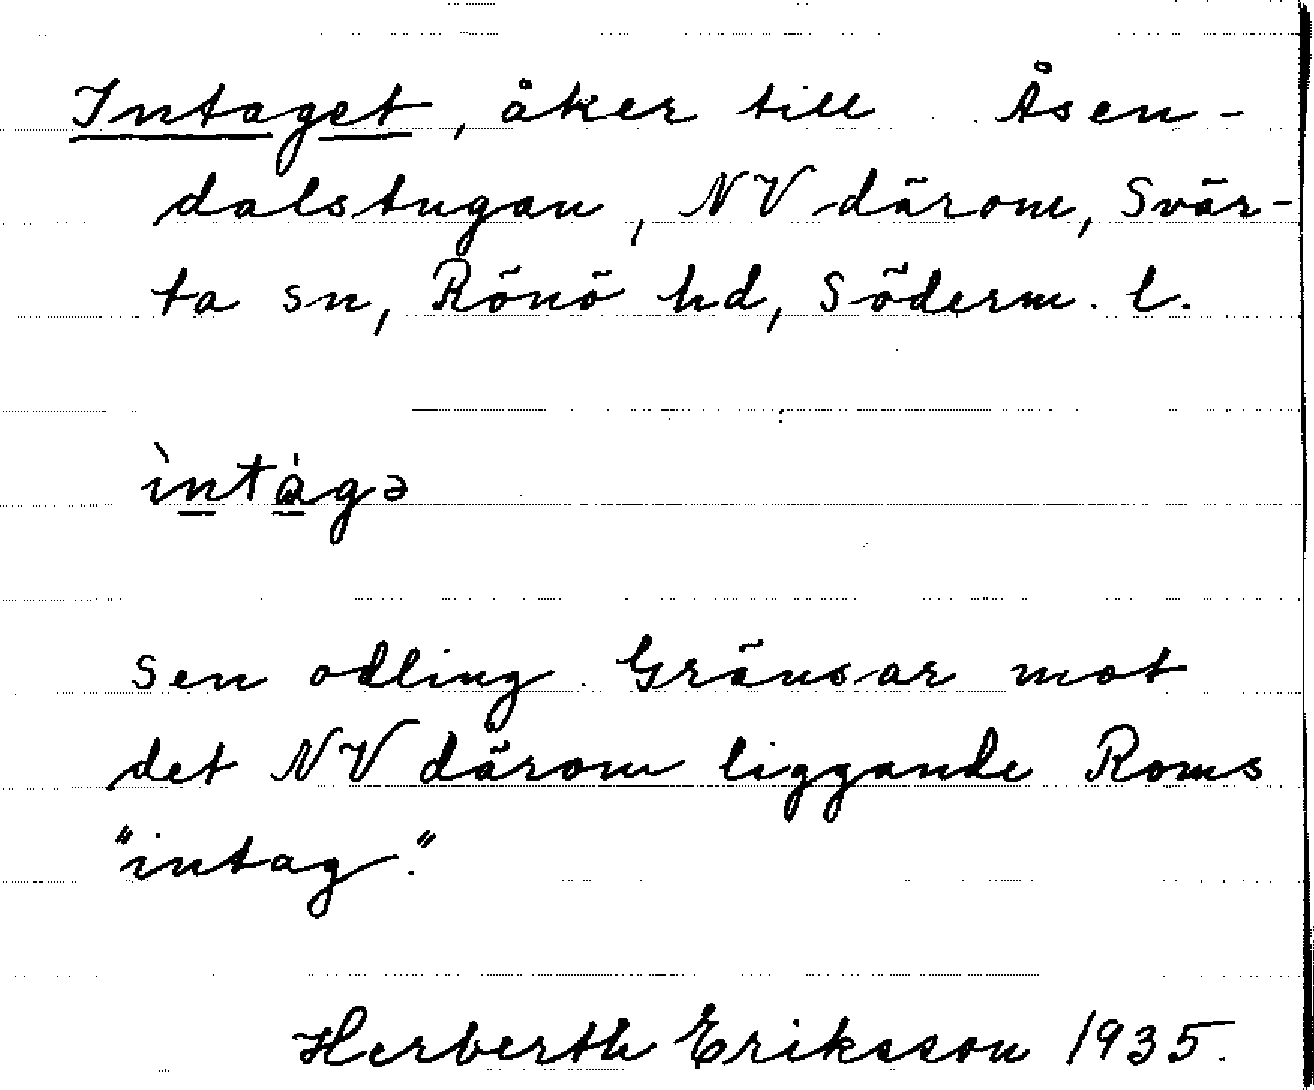 Intaget, åker till Åsen-
dalstugan, NV därom, Svär-
ta sn, Rönö hd, Söderm. l.
ìntàgə
Sen odling. Gränsar mot
det NV därom liggande Roms
"intag."
Herberth Eriksson 1935.